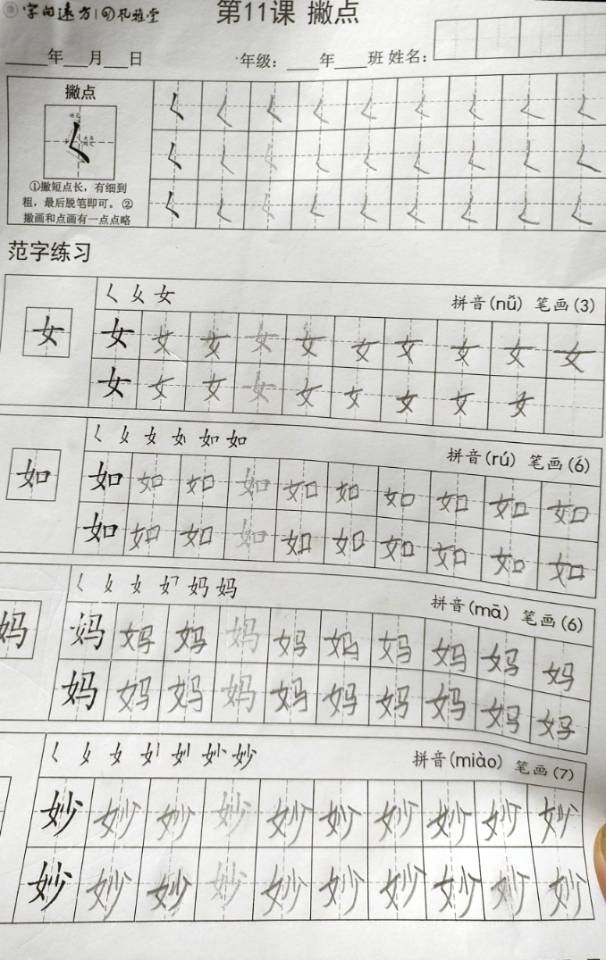 第11课 撇点
年 月 日 年级： 年 班 姓名：
撇点
①撇短点长，有细到
粗，最后脱笔即可。②
撇画和点画有一点点略
范字练习
女 拼音(nǚ) 笔画(3)
女 女 女 女 女 女 女 女 女 女 女
女 女 女 女 女 女 女 女 女
如 如 拼音(rú) 笔画(6)
如 如 如 如 如 如 如 如 如 如 如
如 如 如 如 如 如 如 如 如 如
女 妈 妈 拼音(mā) 笔画(6)
妈 妈 妈 妈 妈 妈 妈 妈 妈 妈 妈
妈 妈 妈 妈 妈 妈 妈 妈 妈 妈
女 妙 拼音(miào) 笔画(7)
妙 妙 妙 妙 妙 妙 妙 妙 妙 妙
妙 妙 妙 妙 妙 妙 妙 妙 妙 妙